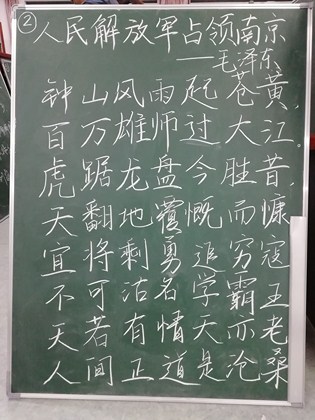 ②人民解放军占领南京
——毛泽东
钟山风雨起苍黄
百万雄师过大江
虎踞龙盘今胜昔
天翻地覆慨而慷
宜将剩勇追穷寇
不可沽名学霸王
天若有情天亦老
人间正道是沧桑